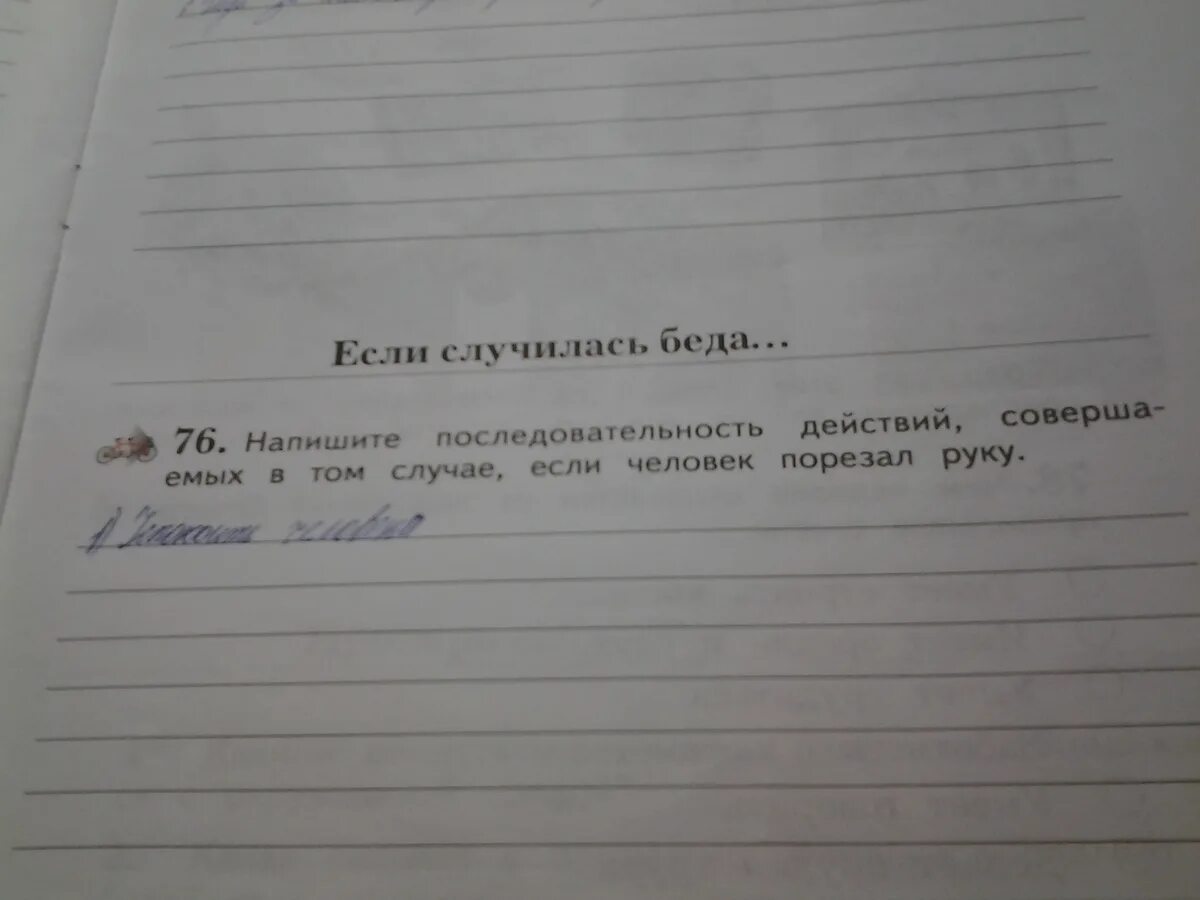 Если случилась беда...
76. Напишите последовательность действий, соверша-
емых в том случае, если человек порезал руку.
1) Успокоить человека